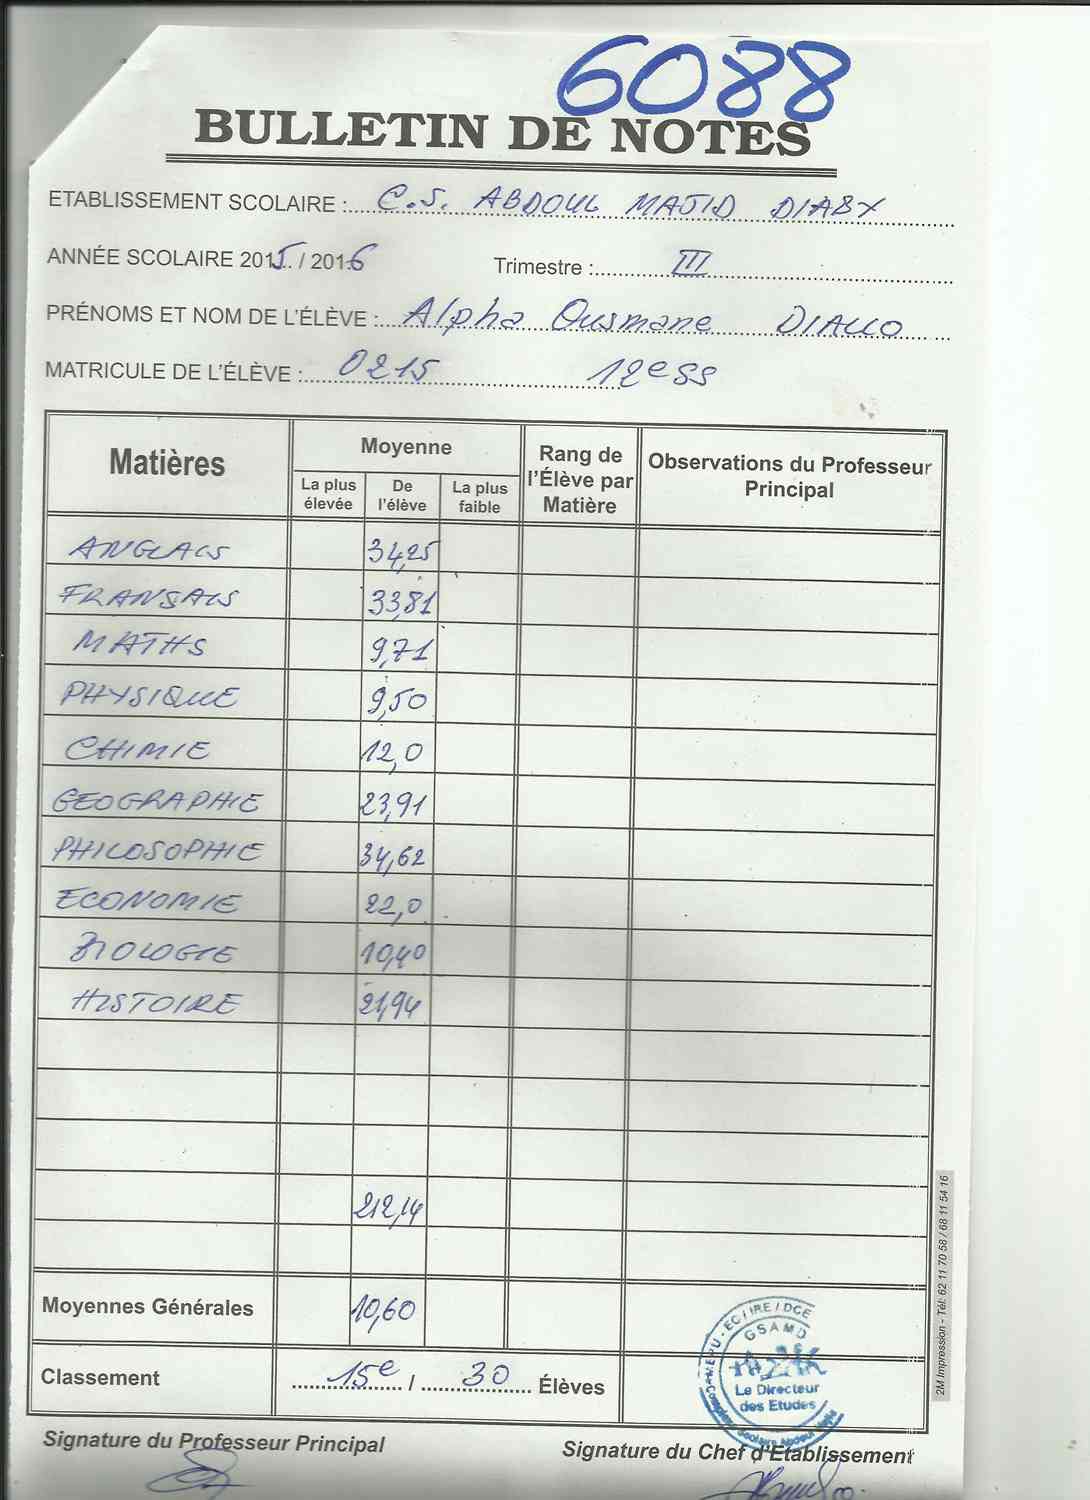 6088
BULLETIN DE NOTES
ETABLISSEMENT SCOLAIRE : C.S. ABDOUL MAJID DIABY
ANNÉE SCOLAIRE 2015 / 2016 Trimestre : III
PRÉNOMS ET NOM DE L'ÉLÈVE : Alpha Ousmane DIALLO
MATRICULE DE L'ÉLÈVE : 0215 12e SS
Matières Moyenne Rang de l'Élève par Matière Observations du Professeur Principal
La plus élevée De l'élève La plus faible
ANGLAIS 34,25
FRANSAIS 33,81
MATHS 9,71
PHYSIQUE 9,50
CHIMIE 12,0
GEOGRAPHIE 23,91
PHILOSOPHIE 34,62
ECONOMIE 22,0
BIOLOGIE 10,40
HISTOIRE 21,94
212,14
Moyennes Générales 10,60
Classement 15e / 30 Élèves
GSAMD
Le Directeur
des Etudes
Signature du Professeur Principal
Signature du Chef d'Etablissement
2M Impression - Tél: 62 11 70 58 / 68 11 54 16